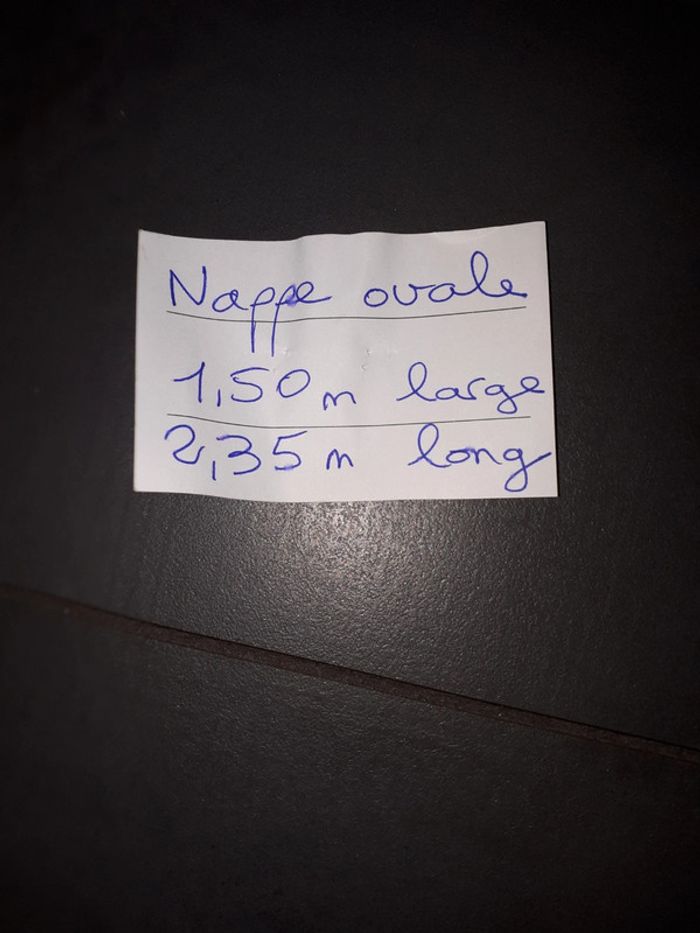 Nappe ovale
1,50 m large
2,35 m long